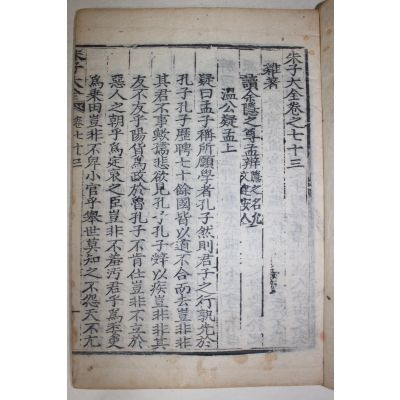 朱子大全卷之七十三
雜著
讀余隱之尊孟辨隱之名允
文建安人
溫公疑孟上
疑曰孟子稱所願學者孔子然則君子之行孰先於
孔子孔子歷聘七十餘國皆以道不合而去豈非非
其君不事歟孺悲欲見孔子孔子辭以疾豈非非其
友不友乎陽貨爲政於魯孔子不肯仕豈非不立於
惡人之朝乎爲定哀之臣豈非不羞汚君乎爲委吏
爲乘田豈非不卑小官乎擧世莫知之不怨天不尤
朱子大全 卷七十三